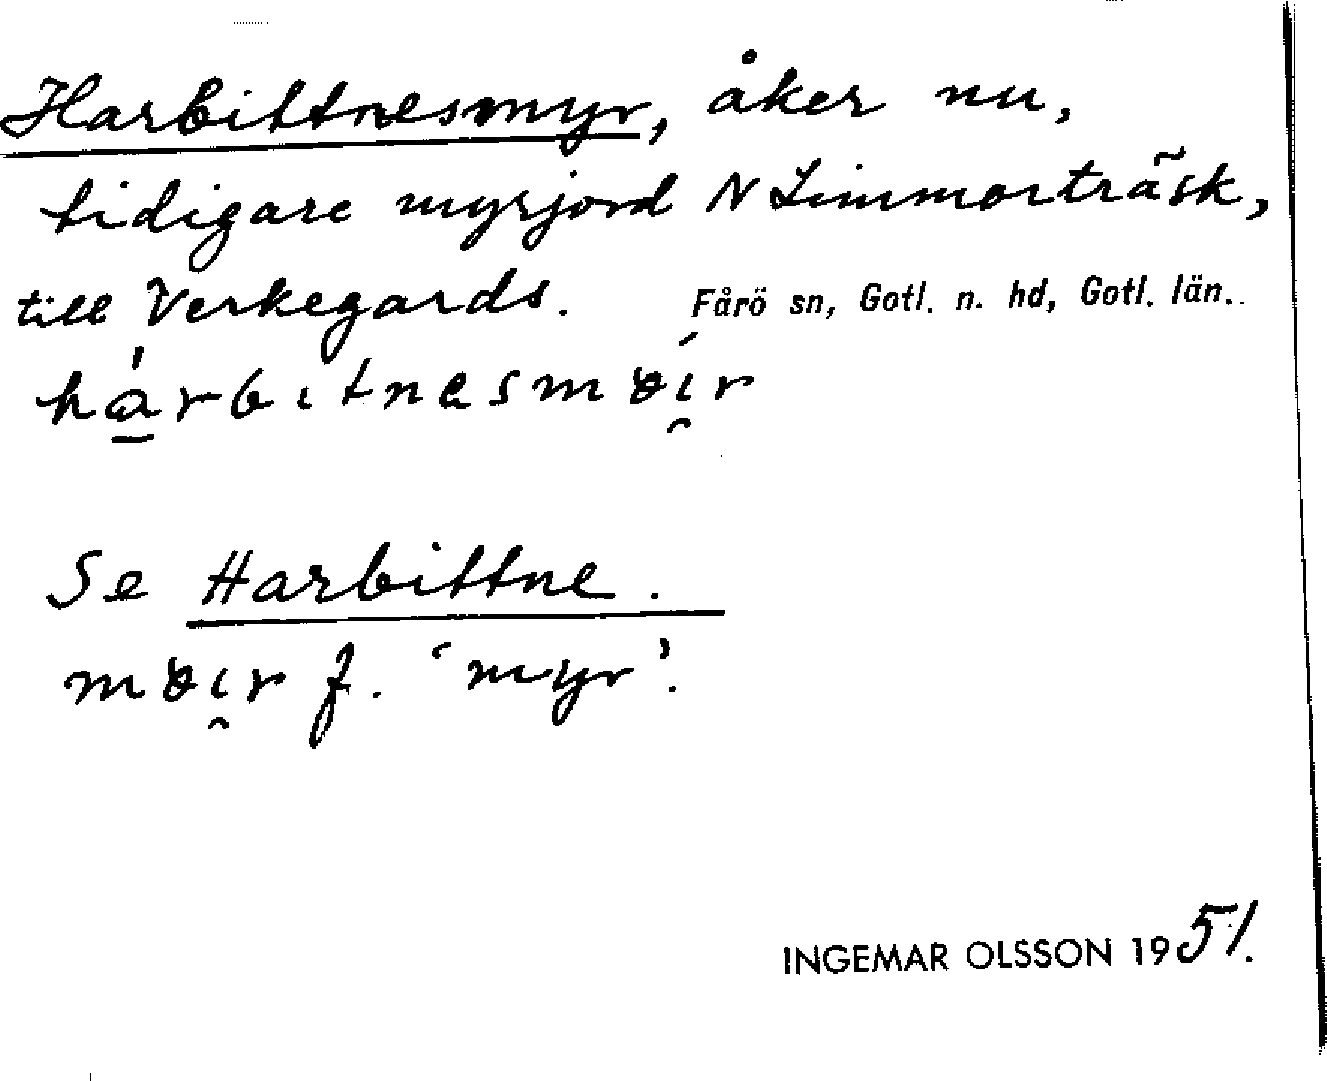 Harbittnesmyr, åker nu,
tidigare myrjord N Limmorträsk,
till Verkegards. Fårö sn, Gotl. n. hd, Gotl. län..
hàrbɩtnesmɞɩ̯́r
Se Harbittne.
mɞɩ̯r f. 'myr'.
INGEMAR OLSSON 1951.